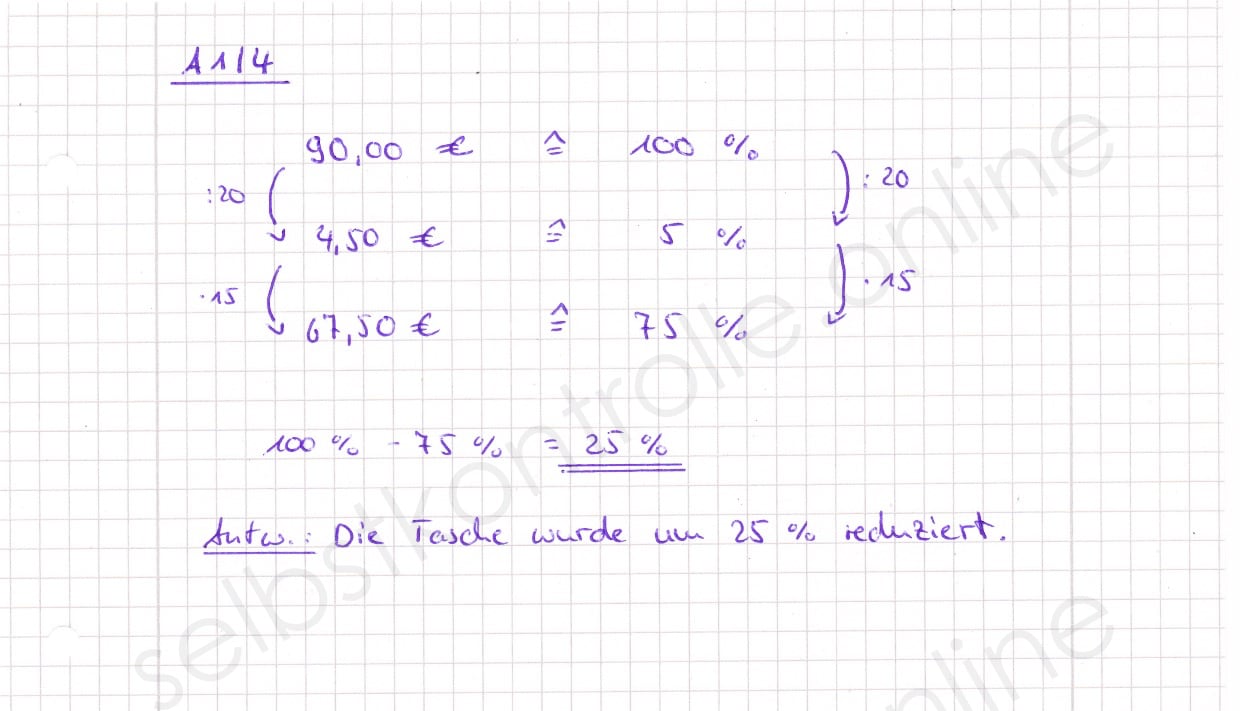 A1/4
90,00 € ≙ 100 %
:20 : 20
4,50 € ≙ 5 %
· 15 · 15
67,50 € ≙ 75 %
100 % - 75 % = 25 %
Antw.: Die Tasche wurde um 25 % reduziert.
selbstkontrolle.online
online